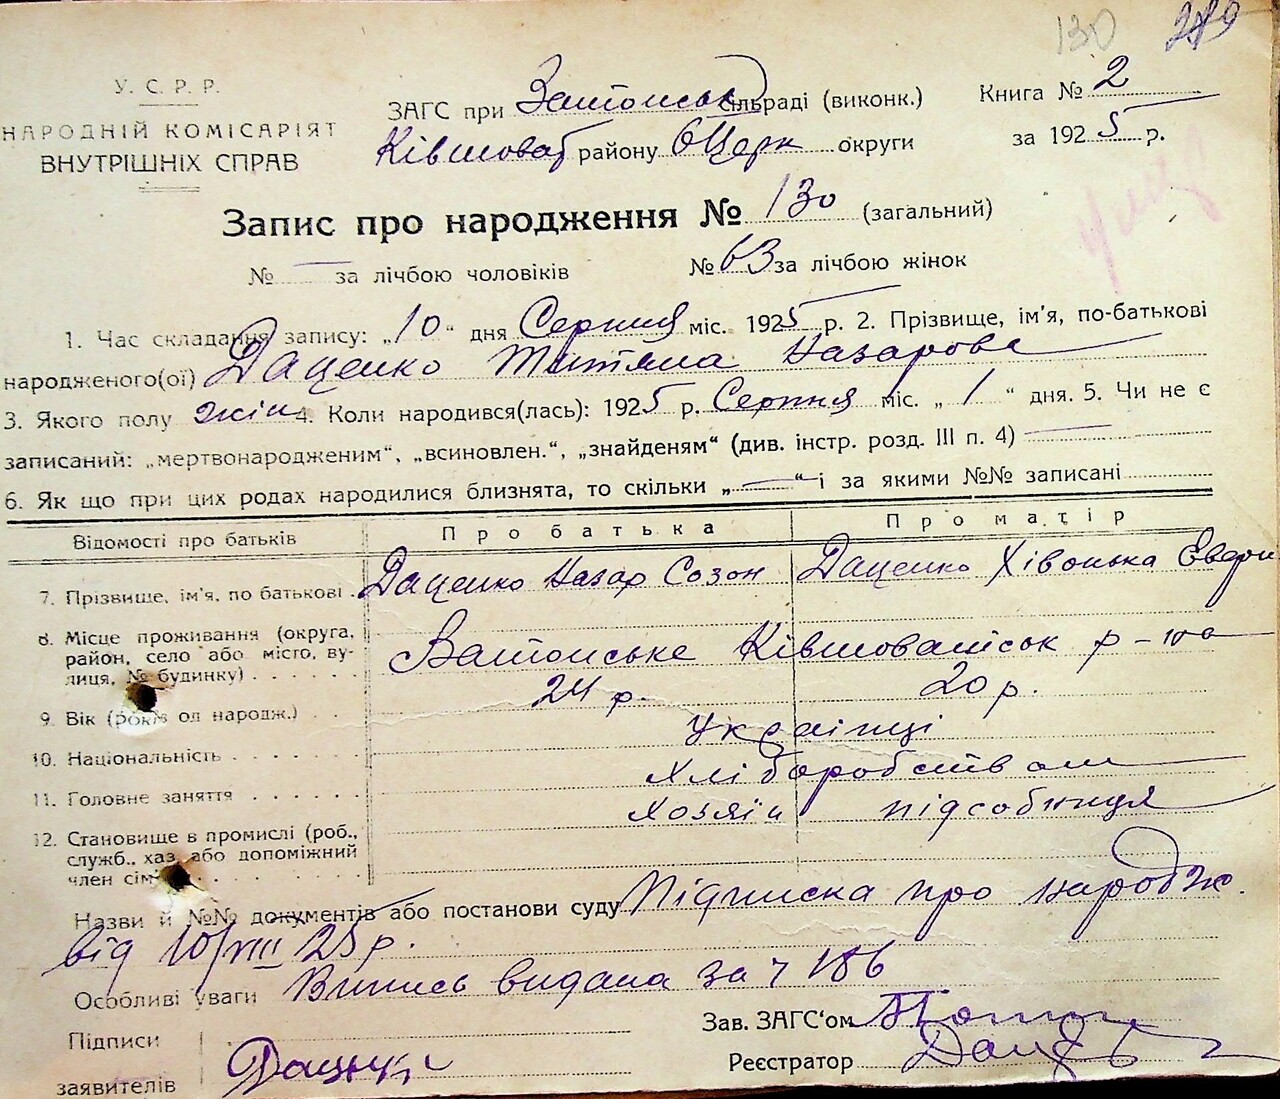 130 279
У. С. Р. Р.
НАРОДНІЙ КОМІСАРІЯТ
ВНУТРІШНІХ СПРАВ
ЗАГС при Затонськ сільраді (виконк.) Книга № 2
Ківшоват району БЦерк округи за 1925 р.
Запис про народження № 130 (загальний)
№ — за лічбою чоловіків № 63 за лічбою жінок
1. Час складання запису: „10“ дня Серпня міс. 1925 р. 2. Прізвище, ім'я, по-батькові
народженого(ої) Даценко Титяна Назарове
3. Якого полу жін 4. Коли народився(лась): 1925 р. Серпня міс. „1“ дня. 5. Чи не є
записаний: „мертвонародженим“, „всиновлен.“, „знайденям“ (див. інстр. розд. III п. 4) —
6. Як що при цих родах народилися близнята, то скільки „—“ і за якими №№ записані
Відомості про батьків Про батька Про матір
7. Прізвище, ім'я, по батькові Даценко Назар Созон Даценко Хівонька Евери
8. Місце проживання (округа,
район, село або місто, ву-
лиця, № будинку) Затонське Ківшоватськ р-на
9. Вік (років од народж.) 24 р. 20 р.
10. Національність Українці
11. Головне заняття Хліборобством
12. Становище в промислі (роб.,
служб., хаз. або допоміжний
член сім. Хозяїн підсобниця
Назви й №№ документів або постанови суду Підписка про народж.
від 10/VIII 25 р.
Особливі уваги Випись видана за ч 186
Підписи Зав. ЗАГС'ом
заявителів Реєстратор